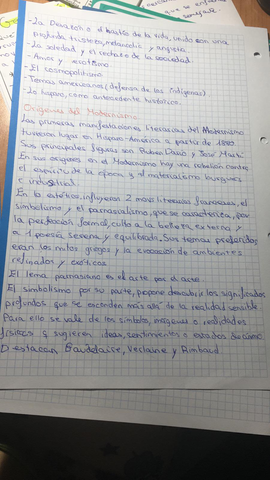 -La Desazón o el hastío de la vida, unido con una
profunda tristeza, melancolía y angustia.
-La soledad y el rechazo de la sociedad.
-Amor y erotismo
-El cosmopolitismo.
-Temas americanos (defensa de los indígenas)
-Lo hispano, como antecedente histórico.
Orígenes del Modernismo
Las primeras manifestaciones literarias del Modernismo
tuvieron lugar en Hispano-América a partir de 1880
Sus principales figuras son Rubén Darío y José Martí
En sus orígenes en el Modernismo hay una rebelión contra
el espíritu de la época y el materialismo burgues
e industrial.
En la estética, influyeron 2 movs literarios franceses, el
simbolismo y el parnasianismo, que se caracteriza, por
la perfección formal, culto a la belleza externa y
a 1 poesía serena y equilibrada. Sus temas preferidos
eran los mitos griegos y la evocación de ambientes
refinados y exóticos.
El lema parnasiano es el arte por el arte.
El simbolismo por su parte, propone descubrir los significados
profundos que se esconden más allá de la realidad sensible
Para ello se vale de los símbolos, imágenes o realidades
físicas q sugieren ideas, sentimientos o estados de ánimo
Destacan Baudelaire, Verlaine y Rimbaud.